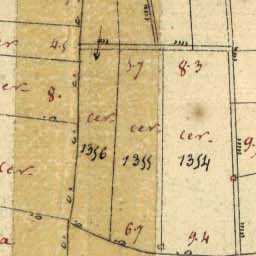 cer
4.5
3.7
8.3
er
8.
cer.
cer.
cer.
1356
1355
1354
9.
cer.
6.7
9.4
a